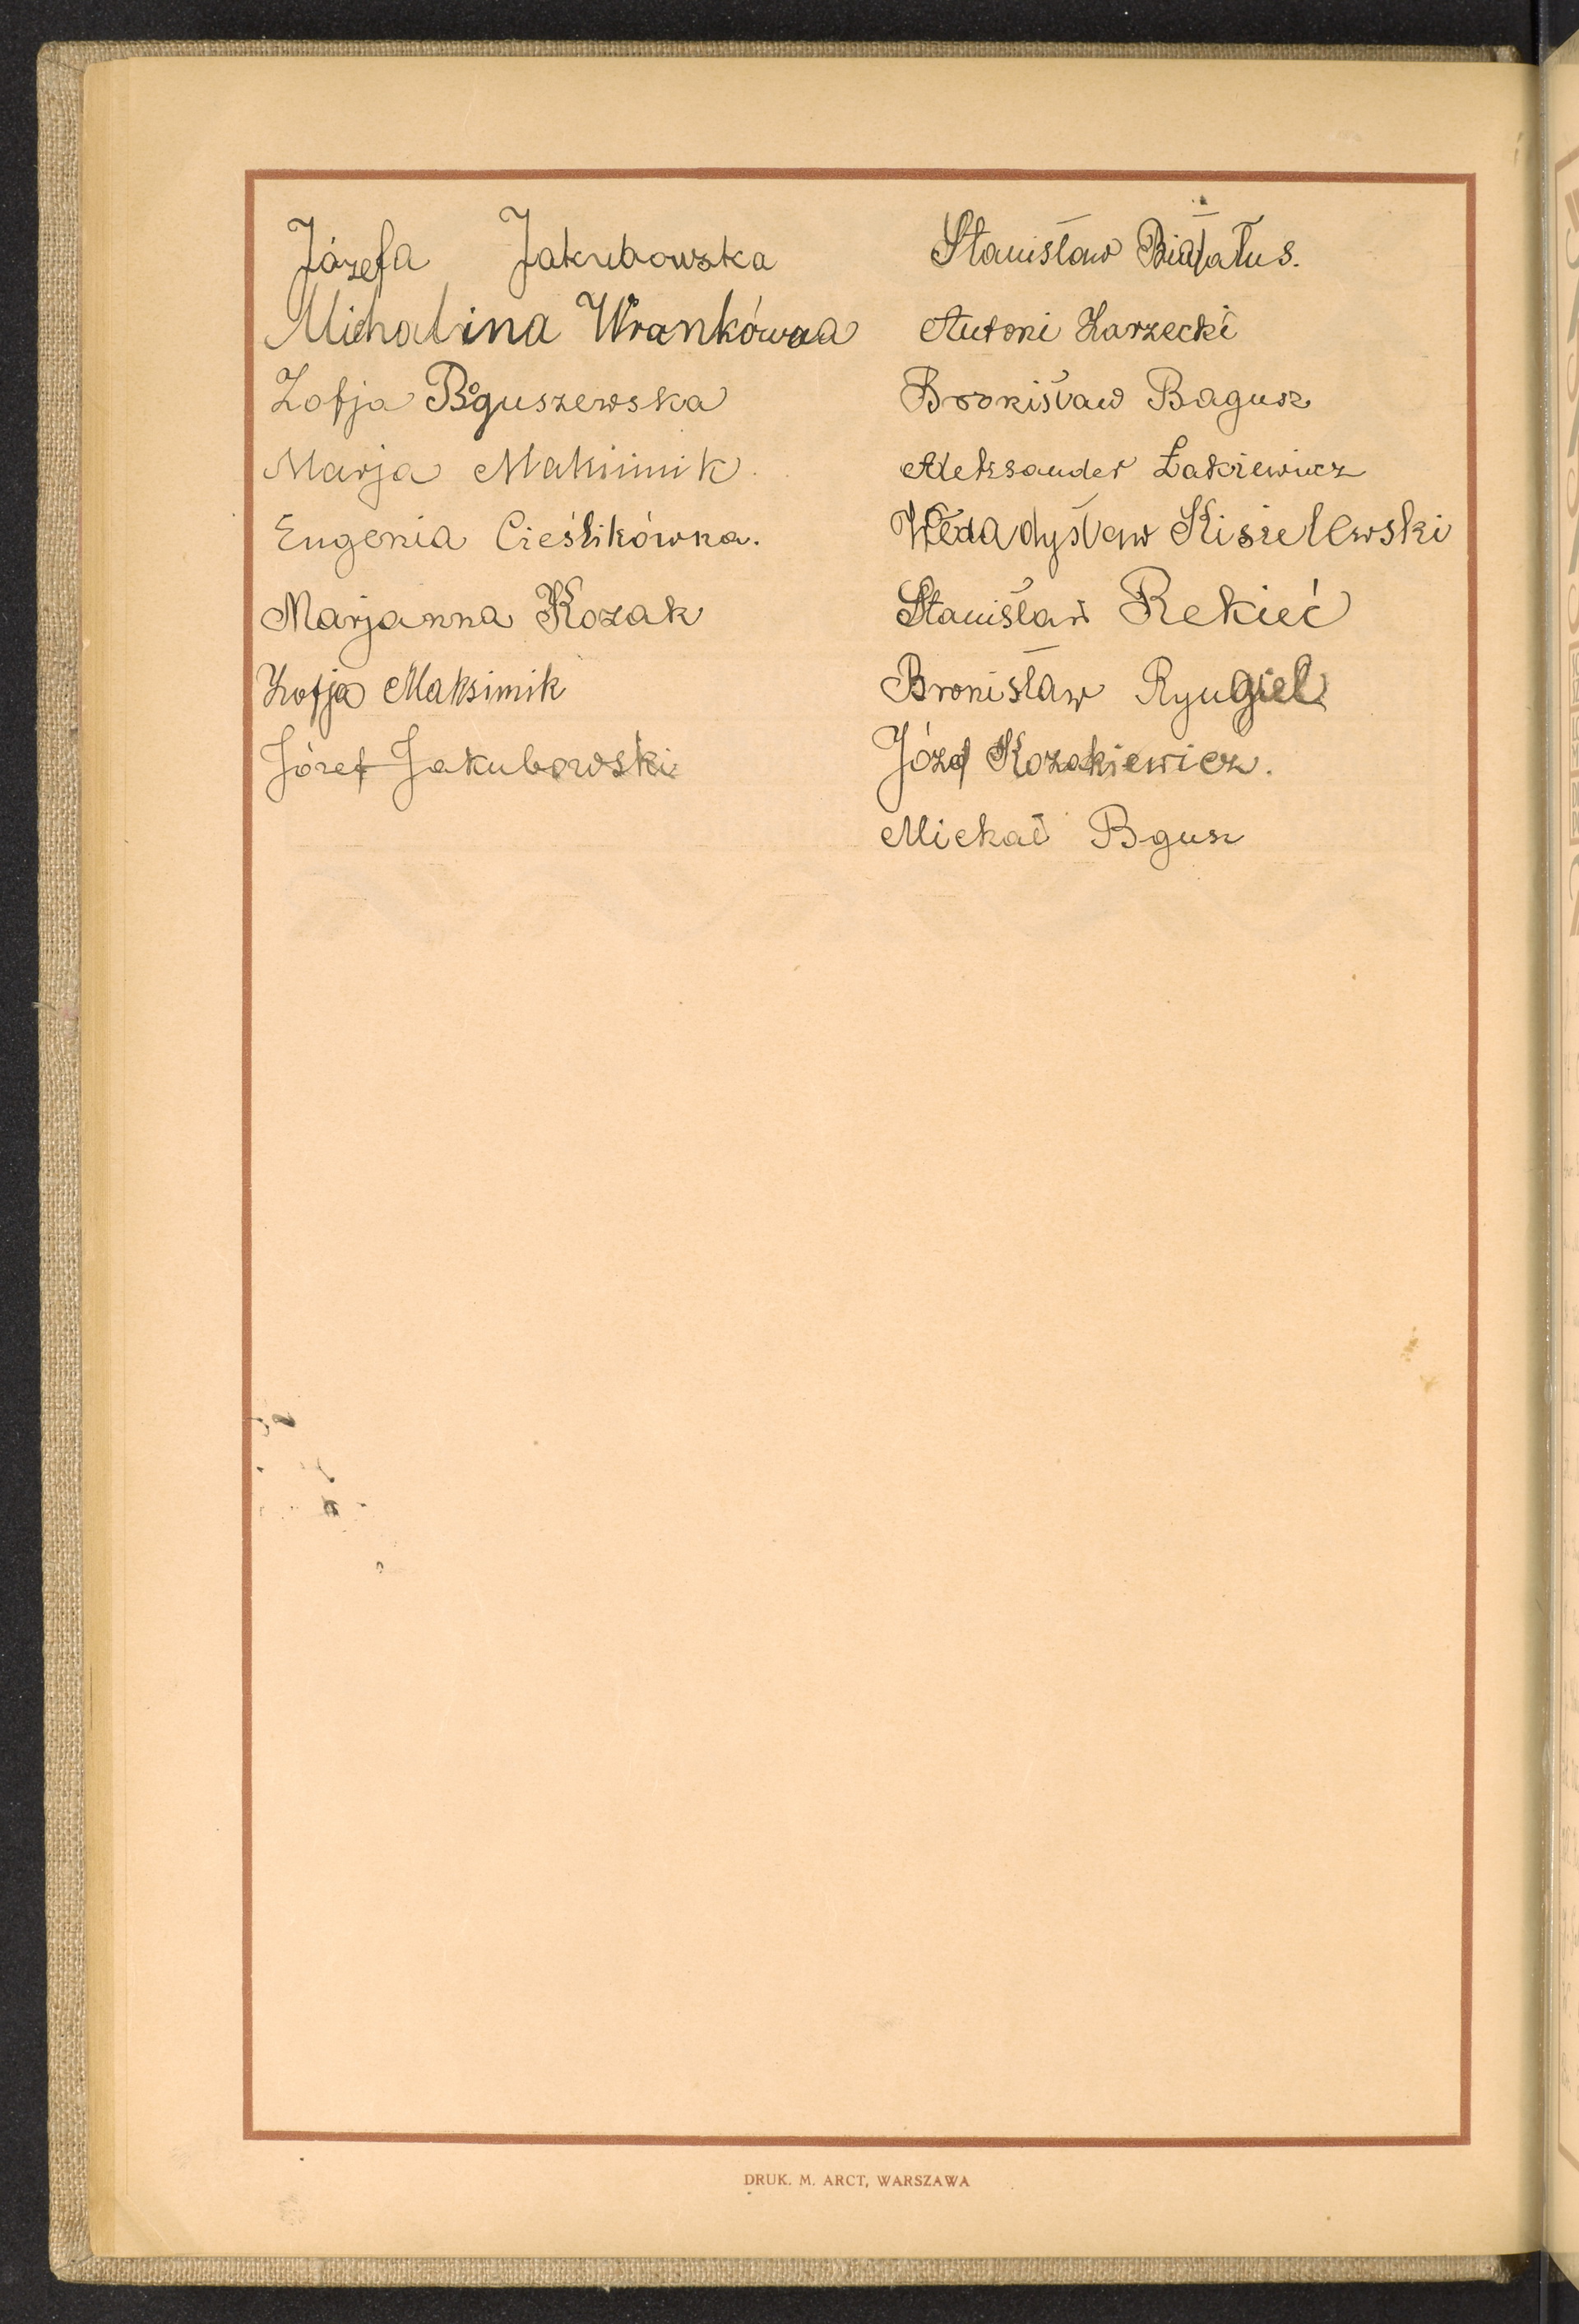 Józefa Jakubowska
Michalina Wrankówna
Zofja Boguszewska
Marja Maksimik
Eugenia Cieślikówna.
Marjanna Kozak
Zofja Maksimik
Józef Jakubowski
Stanisław
Antoni Zarzecki
Bronisław Bagusz
Aleksander Łakiewicz
Władysław Kisielewski
Stanisław Rekieć
Bronisław Ryugiel
Józef Kozakiewicz.
Michał Bgusz
DRUK. M. ARCT, WARSZAWA